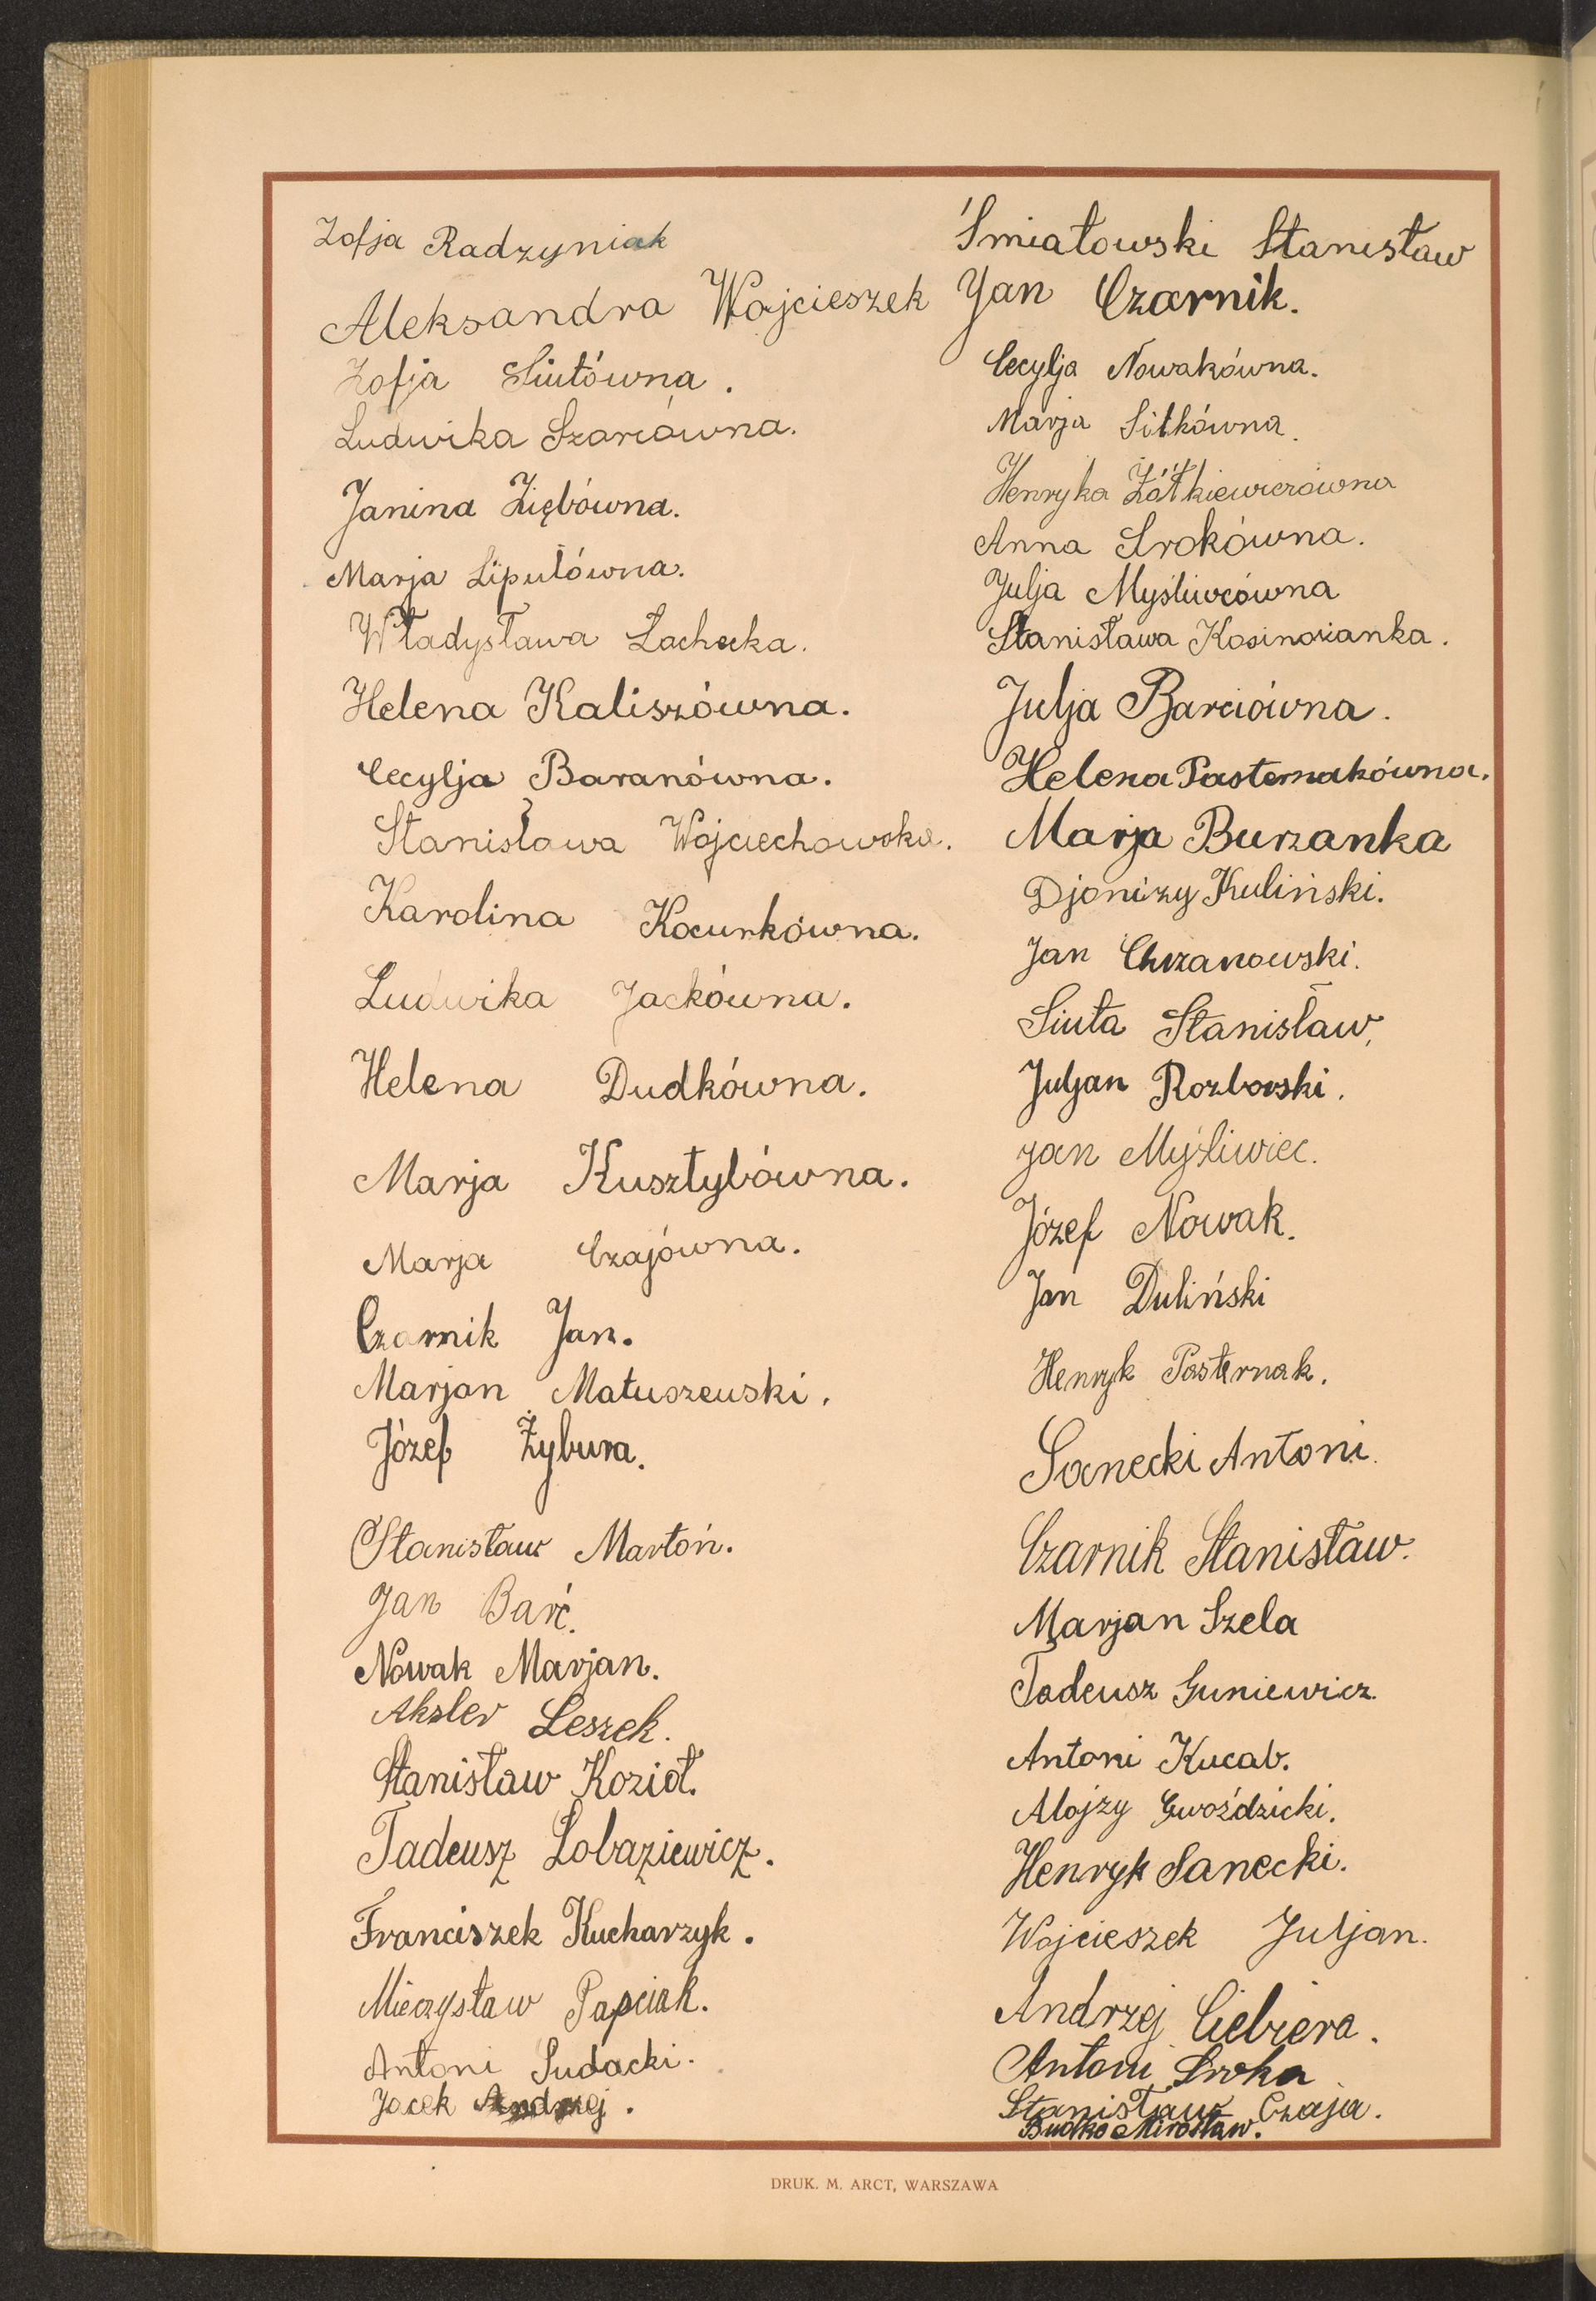 Zofja Radzyniak
Aleksandra Wojcieszek
Zofja Siutówna.
Ludwika Szarówna.
Janina Ziębówna.
Marja Liputówna.
Władysława Lachecka.
Helena Kaliszówna.
Cecylja Baranówna.
Stanisława Wojciechowska.
Karolina Kocurkówna.
Ludwika Jackówna.
Helena Dudkówna.
Marja Kusztybówna.
Marja Czajówna.
Czarnik Jan.
Marjan Matuszewski.
Józef Żybura.
Stanisław Martoń.
Jan Barć.
Nowak Marjan.
Aksler Leszek.
Stanisław Kozioł.
Tadeusz Łobaziewicz.
Franciszek Kucharzyk.
Mieczysław Papciak.
Antoni Sudacki.
Jacek Andrzej.
Śmiatowski Stanisław
Jan Czarnik.
Cecylja Nowakówna.
Marja Sitkówna.
Henryka Żółkiewiczówna
Anna Srokówna.
Julja Myśliwcówna
Stanisława Kosinozianka.
Julja Barciówna.
Helena Pasternakówna.
Marja Burzanka
Djonizy Kuliński.
Jan Chrzanowski.
Siuta Stanisław,
Juljan Rozborski.
Jan Myśliwiec.
Józef Nowak.
Jan Duliński
Henryk Pasternak.
Sanecki Antoni.
Czarnik Stanisław.
Marjan Szela
Tadeusz Guniewicz.
Antoni Kucab.
Alojzy Gwoździcki.
Henryk Sanecki.
Wojcieszek Juljan.
Andrzej Ciebiera.
Antoni Sroka
Stanisław Czaja.
Budko Mirosław.
DRUK. M. ARCT, WARSZAWA